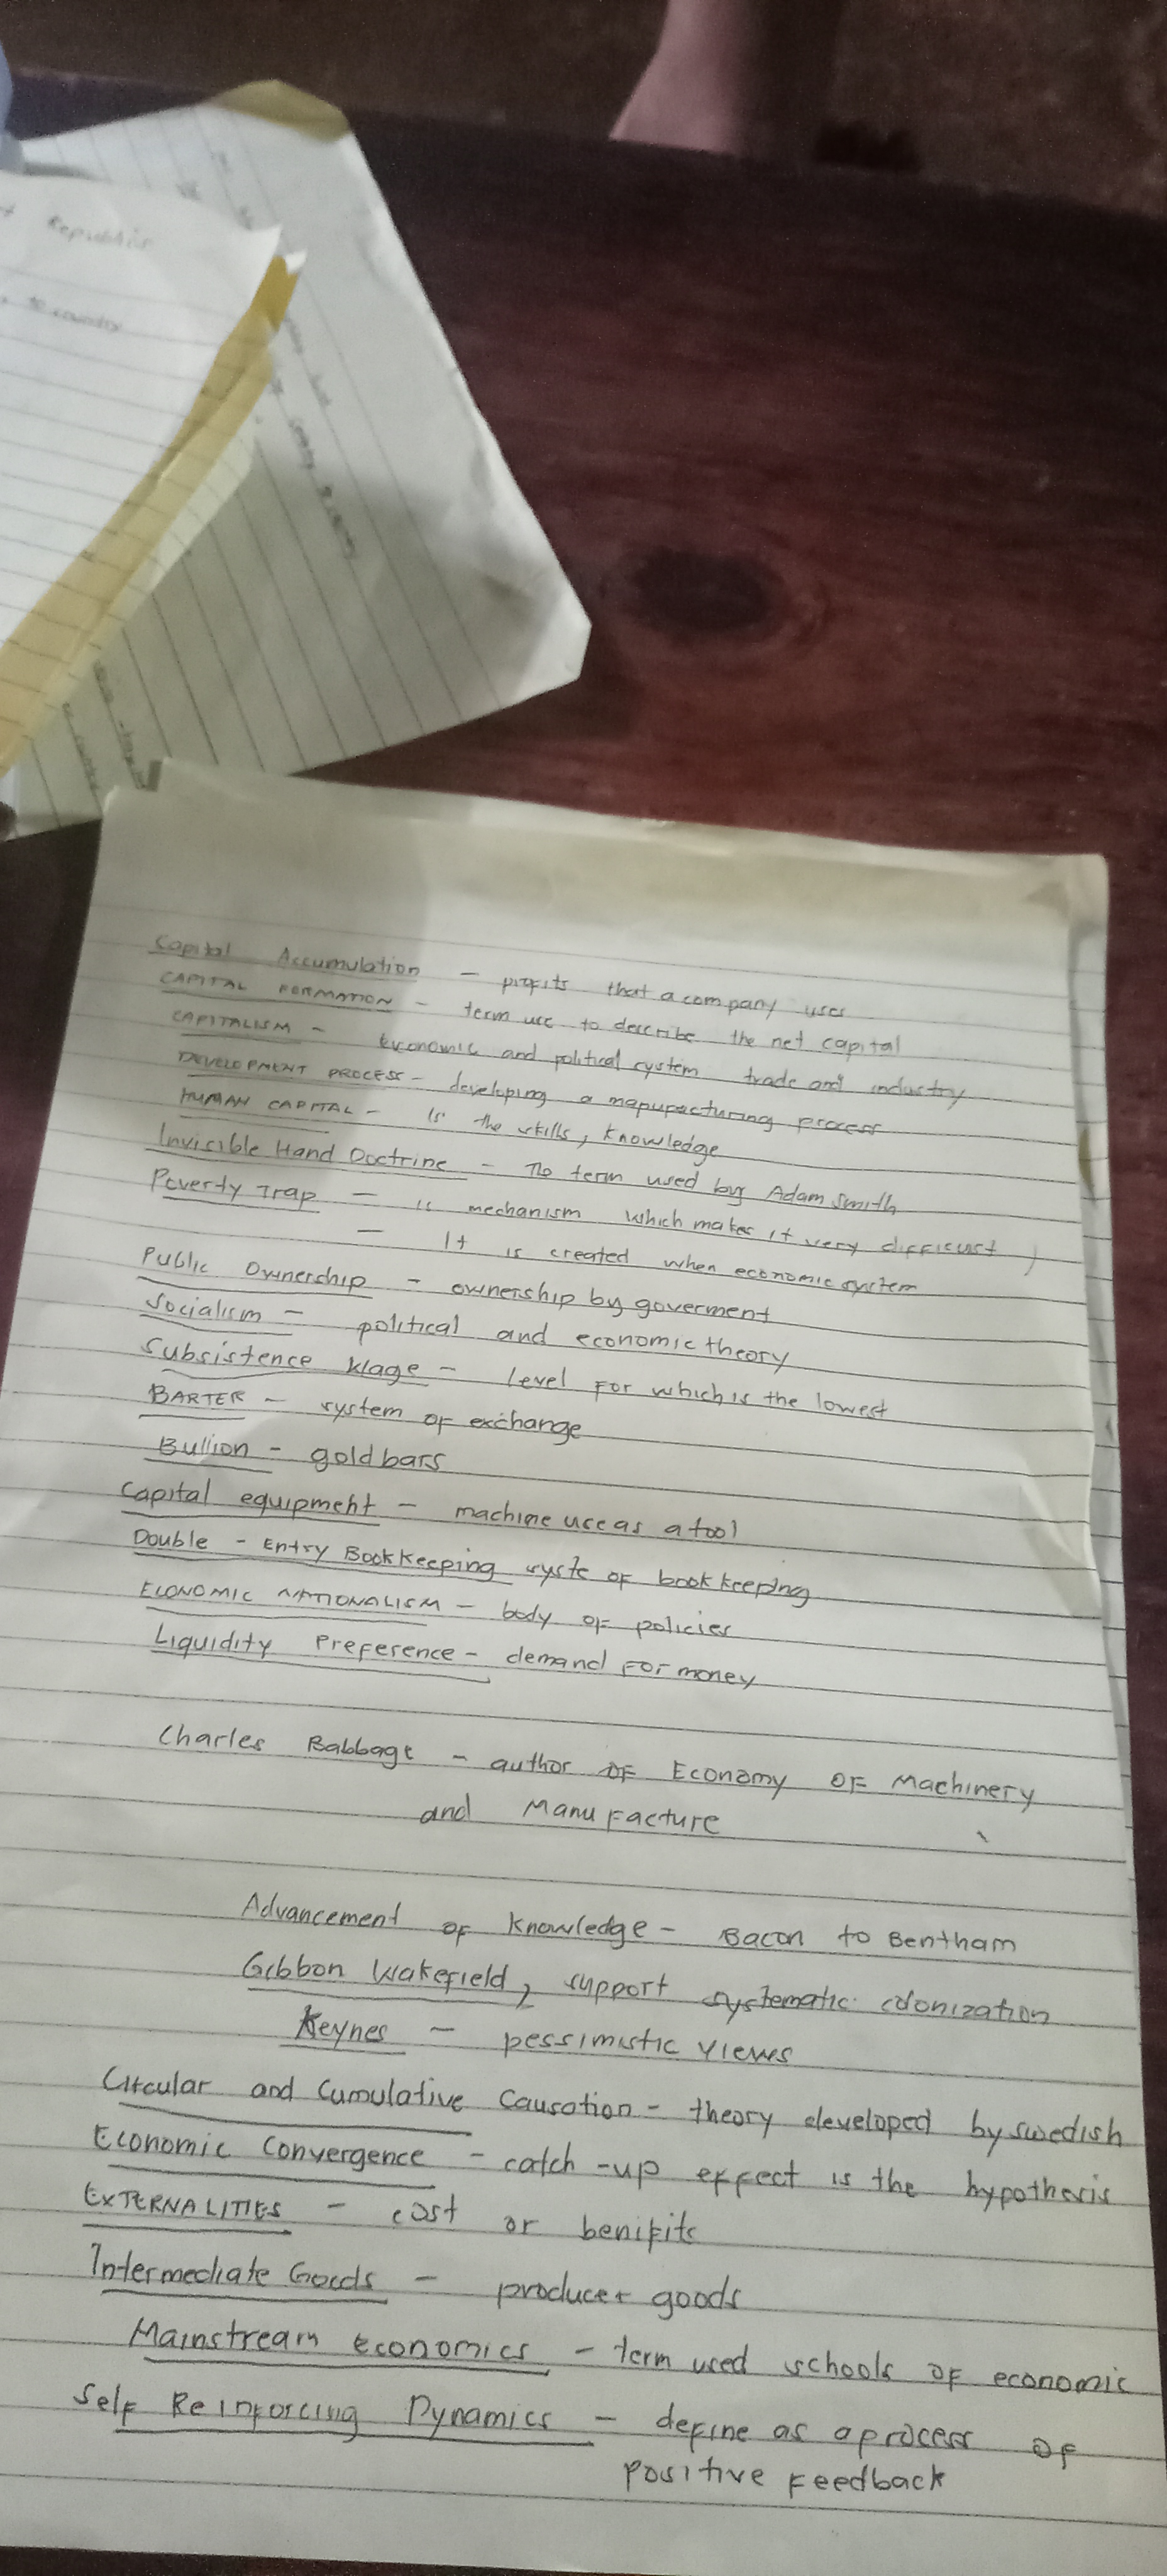 Republic
to country
Capital Accumulation - profits that a company uses
CAPITAL FORMATION - term use to describe the net capital
CAPITALISM - economic and political system trade and industry
DEVELOPMENT PROCESS - developing a manufacturing process
HUMAN CAPITAL - is the skills, knowledge
Invisible Hand Doctrine - The term used by Adam Smith
Poverty Trap - is mechanism which makes it very difficult,
- It is created when economic system
Public Ownership - ownership by goverment
Socialism - political and economic theory
Subsistence Wage - level for which is the lowest
BARTER - system of exchange
Bullion - gold bars
Capital equipment - machine use as a tool
Double - Entry Bookkeeping syste of bookkeeping
ECONOMIC NATIONALISM - body of policies
Liquidity Preference - demand for money
Charles Babbage - author of Economy of Machinery
and Manufacture
Advancement of Knowledge - Bacon to Bentham
Gibbon Wakefield, support systematic colonization
Keynes - pessimistic views
Circular and Cumulative Causation - theory developed by swedish
Economic Convergence - catch-up effect is the hypothesis
EXTERNALITIES - cost or benifits
Intermediate Goods - producer goods
Mainstream economics - term used schools of economic
Self Reinforcing Dynamics - define as a process of
positive feedback